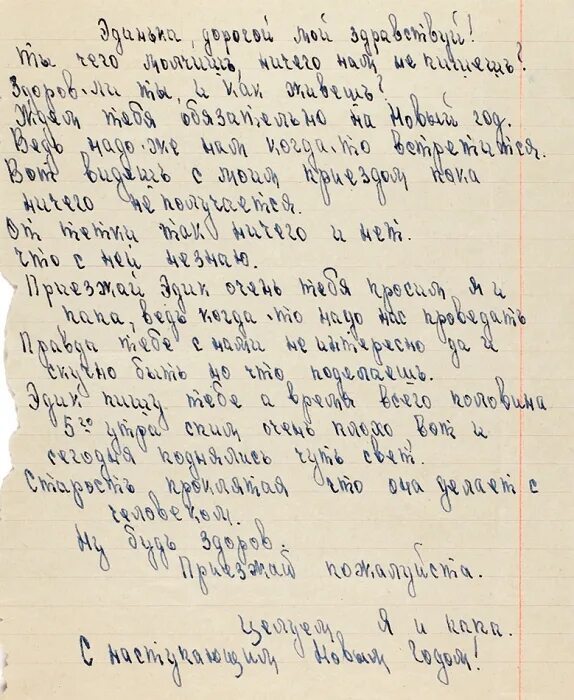 Эдинька, дорогой мой здравствуй!
Ты чего молчишь, ничего нам не пишешь?
Здоров-ли ты, и как живешь?
Ждем тебя обязательно на Новый год.
Ведь надо-же нам когда-то встретится.
Вот видешь с моим приездом пока
ничего не получается.
От тетки так ничего и нет.
что с ней незнаю.
Приезжай Эдик очень тебя просим я и
папа, ведь когда-то надо нас проведать
Правда тебе с нами не интересно да и
скучно быть но что поделаешь.
Эдик пишу тебе а время всего половина
5го утра спим очень плохо вот и
сегодня поднялись чуть свет.
Старость проклятая что она делает с
человеком.
Ну будь здоров.
Приезжай пожалуйста.
Целуем я и папа.
С наступающим Новым Годом!